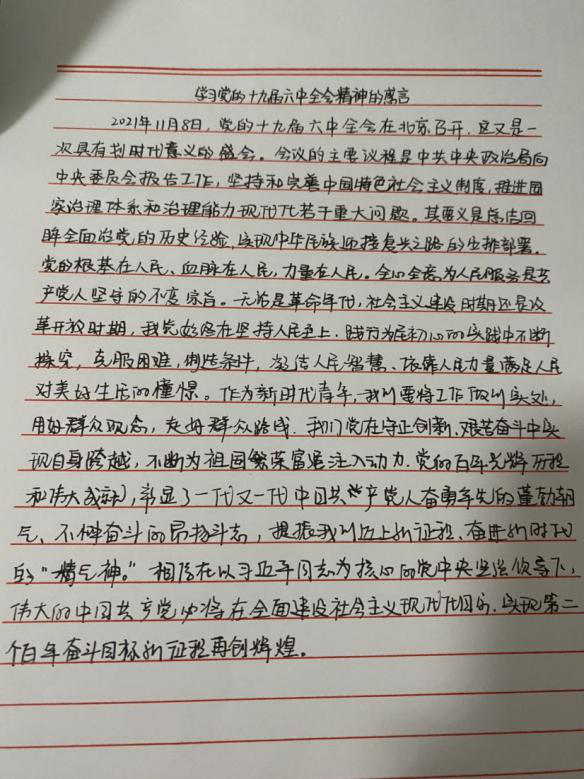 学习党的十九届六中全会精神的寓言
2021年11月8日,党的十九届六中全会在北京召开,这又是一
次具有划时代意义的盛会。会议的主要议程是中共中央政治局向
中央委员会报告工作,坚持和完善中国特色社会主义制度,推进国
家治理体系和治理能力现代化若干重大问题。其要义是总结回
眸全面治党的历史经验,实现中华民族迎接复兴之路的安排部署。
党的根基在人民、血脉在人民,力量在人民。全心全意为人民服务是共
产党人坚守的不变宗旨。无论是革命年代,社会主义建设时期还是改
革开放时期,我党始终在坚持人民至上,践行为民初心的实践中不断
探究,克服困难,创造条件,凝结人民智慧、依靠人民力量满足人民
对美好生活的憧憬。作为新时代青年,我们要将工作做到实处,
用好群众观念,走好群众路线,我们党在守正创新、艰苦奋斗中实
现自身跨越,不断为祖国繁荣富强注入动力.党的百年光辉历程
和伟大成就,彰显了一代又一代中国共产党人奋勇争先的蓬勃朝
气、不懈奋斗的昂扬斗志,提振我们迈上新征程、奋进新时代
的“精气神。”相信在以习近平同志为核心的党中央坚强领导下,
伟大的中国共产党必将在全面建设社会主义现代化国家,实现第二
个百年奋斗目标新征程再创辉煌。